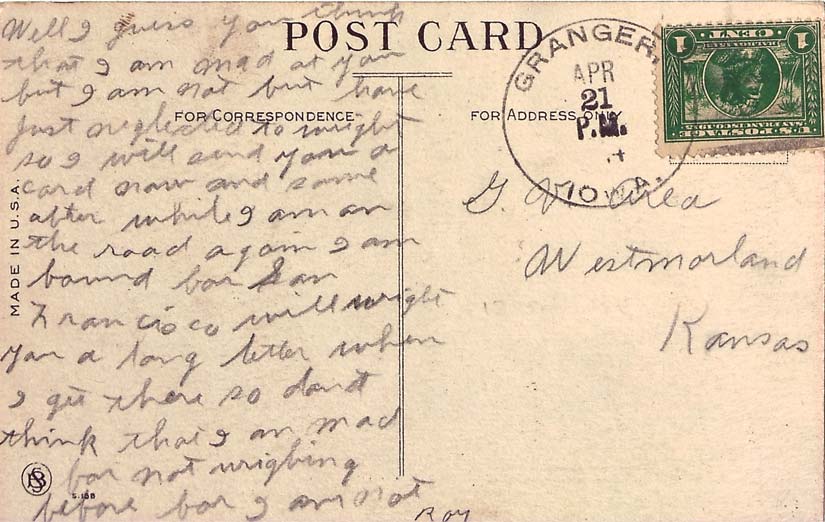 POST CARD
FOR CORRESPONDENCE
FOR ADDRESS ONLY
MADE IN U.S.A.
Well I guess you think
that I am mad at you
but I am not but have
just neglected to wright
so I will send you a
card now and some
after while I am on
the road again I am
bound for San
Francisco will wright
you a long letter when
I get there so dont
think that I am mad
for not wrighing
before for I am not
Roy
S.168
GRANGER,
APR
21
P.M.
IOWA.
1 CENT 1
U.S. POSTAGE
G. V.
Westmorland
Kansas